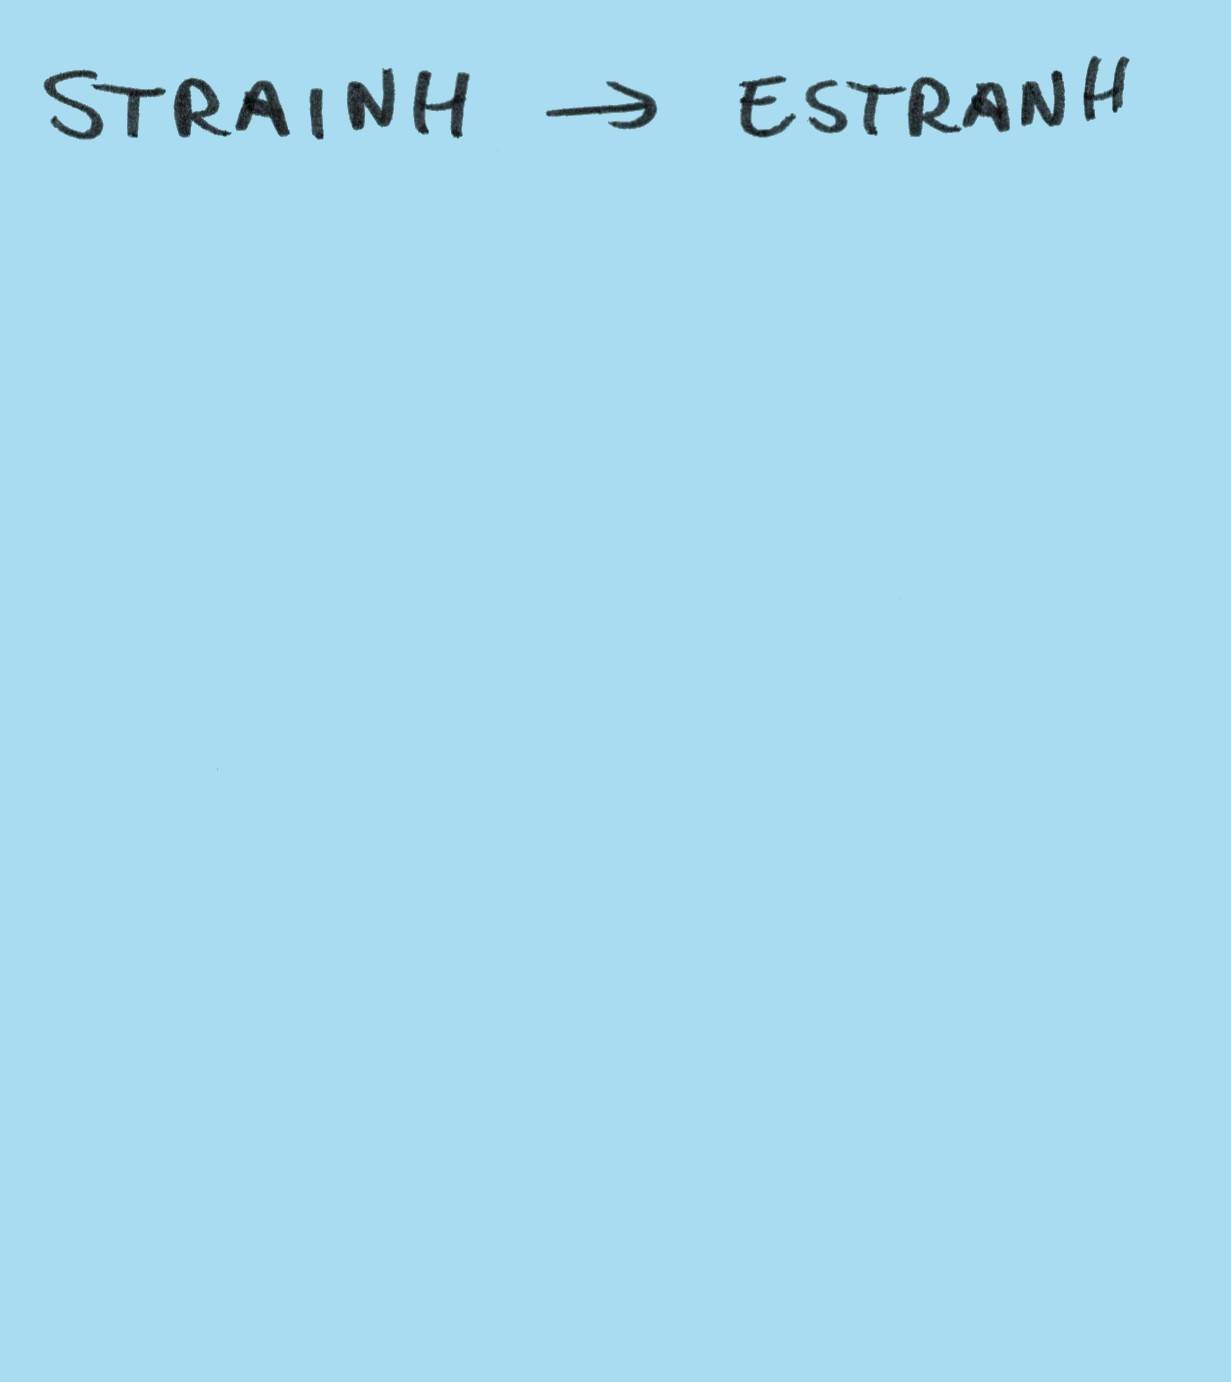 STRAINH → ESTRANH